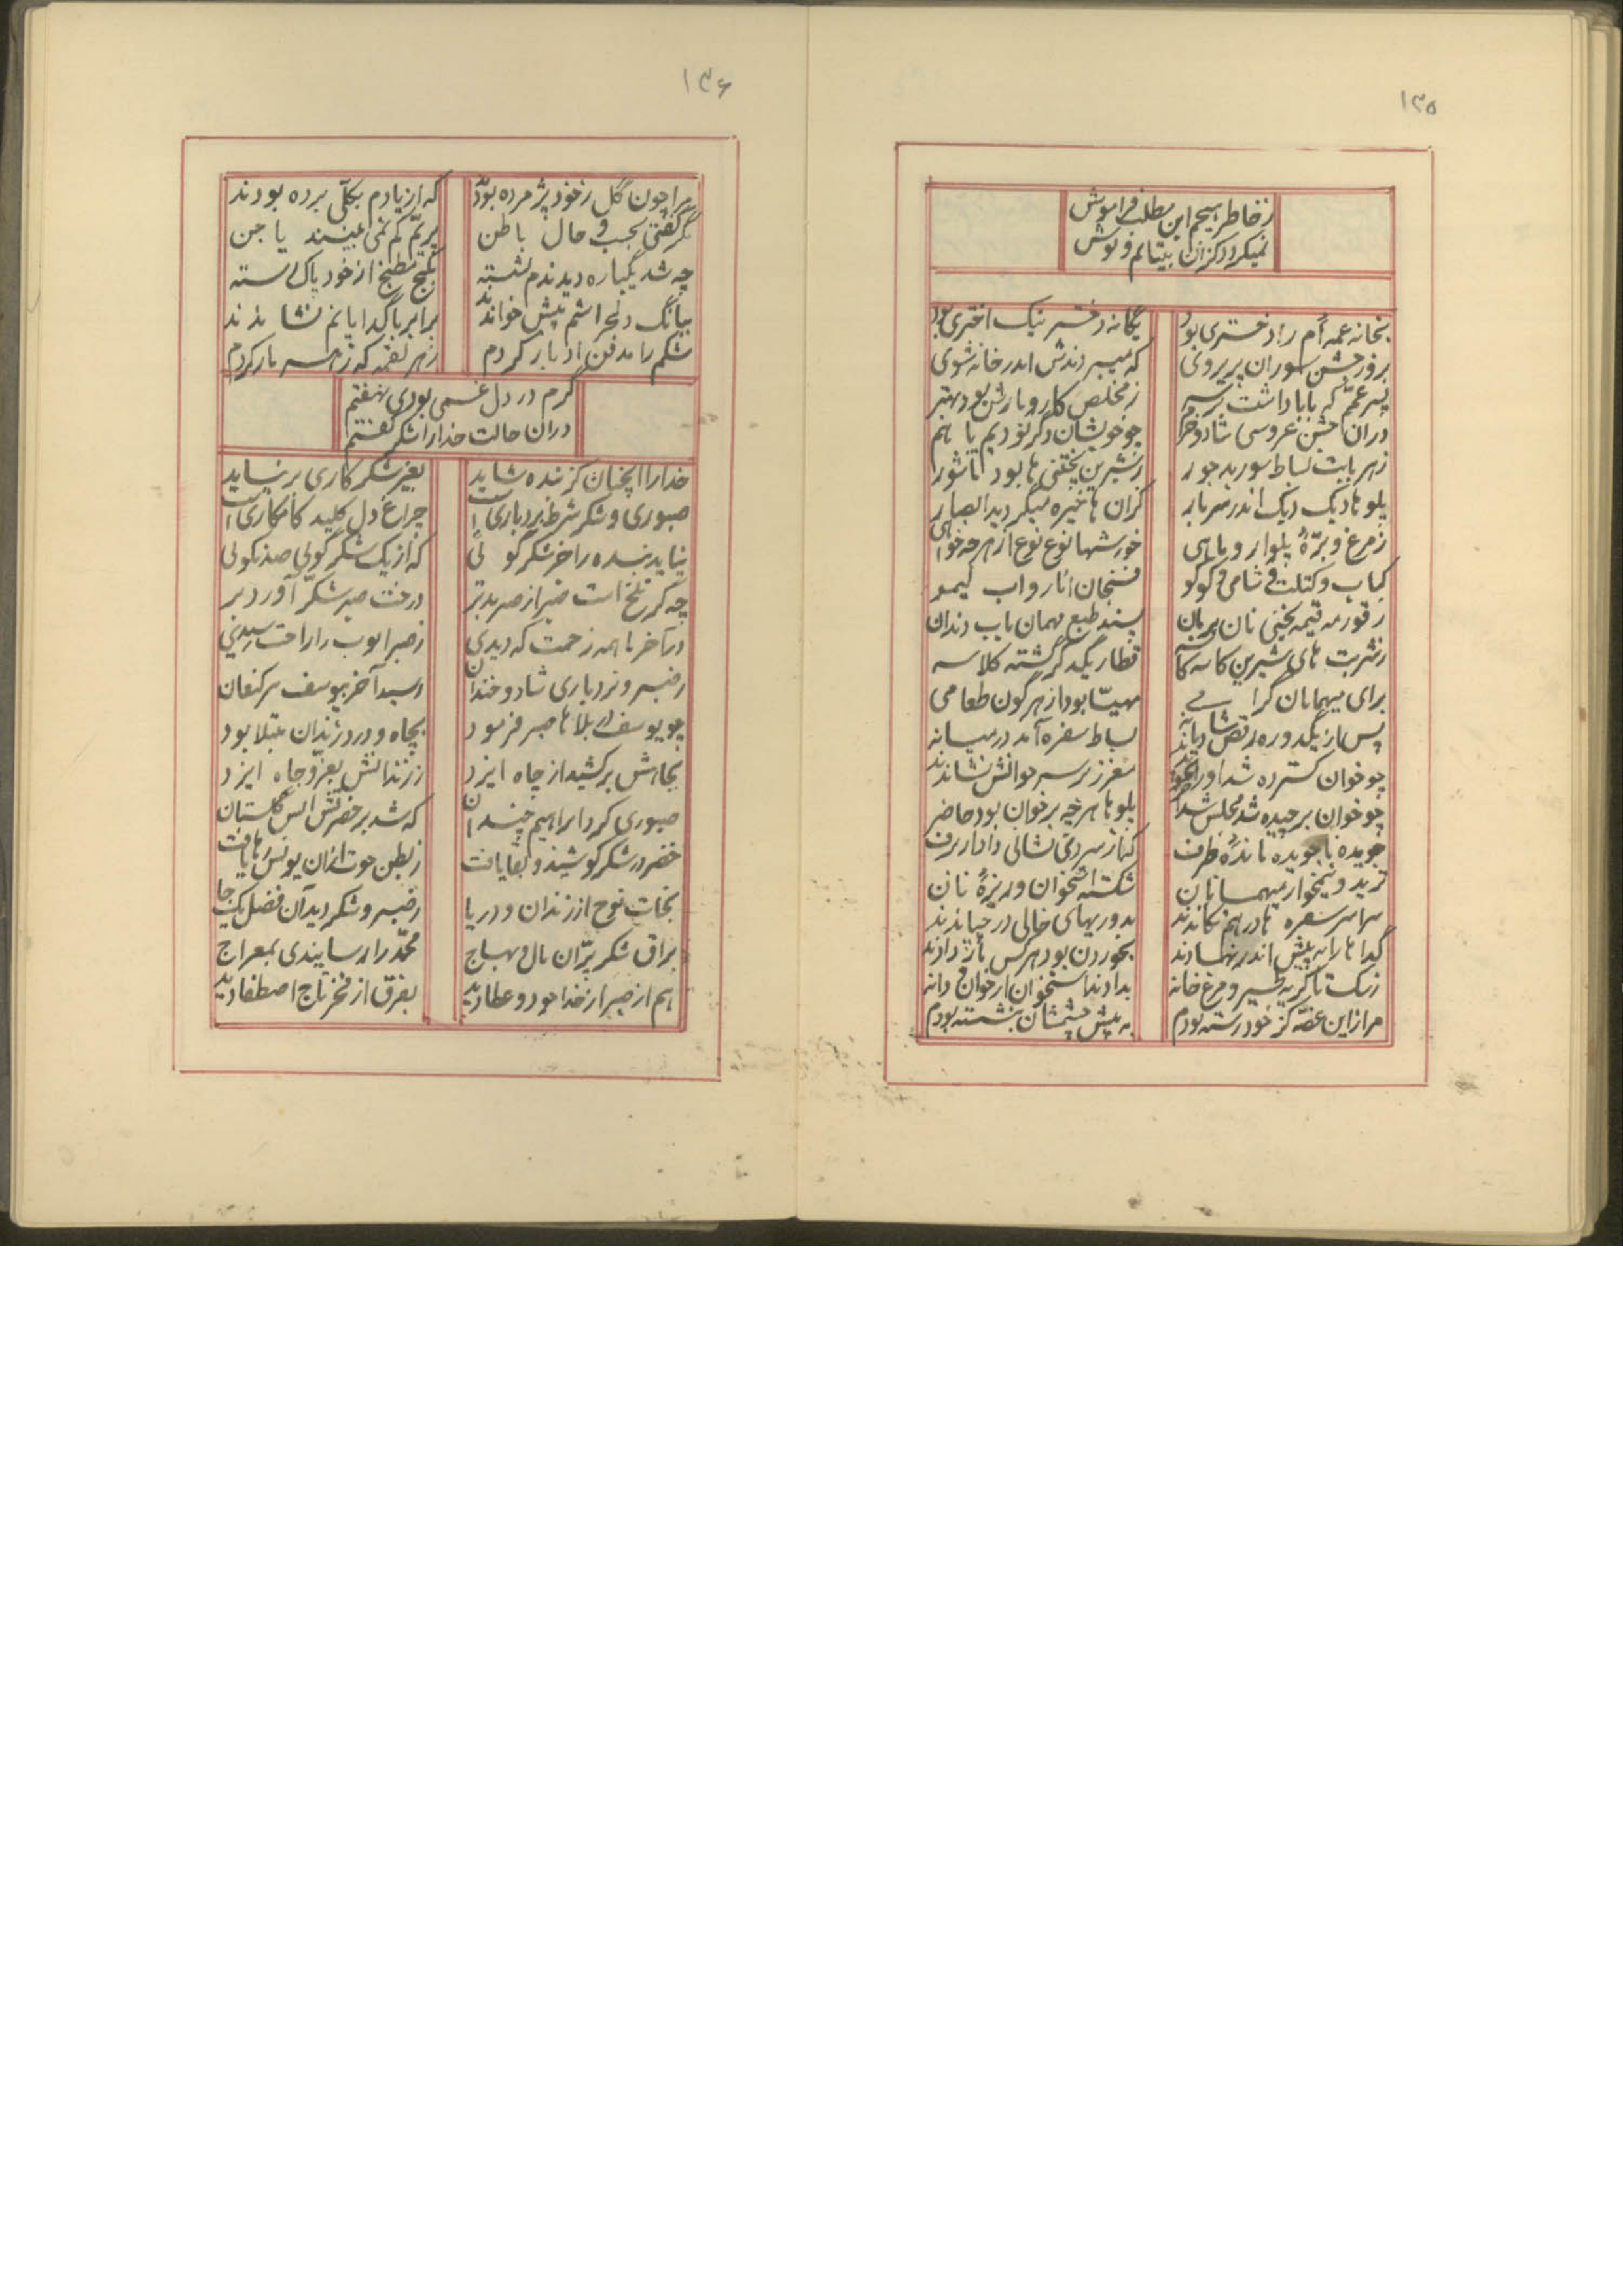 ۱۳۵
زخاطر هیچم این مطلب فراموش
نمیگردد کزان بیتابم و توش
بخانه عمه ام را دختری بود
یگانه دختر نیک اختری بود
بروز جشن سوران پریروی
که میبردندش اندر خانه شوی
پسر عمم که بابا داشت بر سر
ز مخلص کار و بارش بود بهتر
دران جشن عروسی شاد و خرم
چو خویشان دگر بودیم با هم
زهر بابت بساط سور بد جور
ز شیرین پختنی ها بود تا شور
پلوها دیک دیک اندر سر بار
کزان ها خیره میگردید ابصار
ز مرغ و برّهٔ پلوار و ماهی
خورشها نوع نوع از هر چه خواهی
کباب و کتلت و شامی و کوکو
فسنجان انار و اب لیمو
ز قورمه قیمه یخنی نان بریان
پسند طبع مهمان باب دندان
ز شربت های شیرین کاسه کاسه
قطار یکدگر گشته کلاسه
برای میهمانان گرامی
مهیّا بود از هر گون طعامی
پس از یکدوره رقص شادیانه
بساط سفره آمد در میانه
چو خوان گسترده شد او را بخواندند
معزز بر سر خوانش نشاندند
چو خوان برچیده شد مجلس شد آخر
پلوها هر چه بر خوان بود حاضر
جویده ناجویده ماندهٔ ظرف
که از سردی نشانی دادار برف
ترید و نیمخوار میهمانان
شکسته استخوان و ریزهٔ نان
سراسر سفره ها در هم تکاندند
به دوریهای خالی در چپاندند
گداها را به پیش اندر نهادند
بخوردن بود هر کس باز دادند
ز سگ تا گربه طیر و مرغ خانه
بدادند استخوان از خوان و دانه
مرا زاین غصّه کز خود رسته بودم
به پیش چشمشان بنشسته بودم
۱۳۶
مرا چون گل ز خود پژمرده بودند
که از یادم بکلّی برده بودند
مگر گفتی بجسب و حال باطن
پریّم کم نمی بینند یا جن
چه شد یکباره دیدندم نشسته
بکنج مطبخ از خود پاک رسته
ببانگ دلخراشم پیش خواندند
برابر با گدایانم نشاندند
شکم را مدفن ادبار کردم
زهر لقمه که زهر مار کردم
گرم در دل غمی بودی نهفتم
دران حالت خدا را شکر گفتم
خدا را آنچنان کز بنده شاید
بغیر شکر کاری بر نیاید
صبوری و شکر شرط بردباری است
چراغ دل کلید کامکاری است
نیاید بنده را جز شکر گوئی
که از یک شکر گوئی صد نکوئی
چه گر تلخ است صبر از صبر بدتر
درخت صبر شکّر آورد بر
در آخر با همه زحمت که دیدی
ز صبر ایوب را راحت رسیدی
ز صبر و بردباری شاد و خندان
رسید آخر بیوسف پیر کنعان
چو یوسف در بلاها صبر فرمود
بچاه و درد زندان مبتلا بود
بجاهش بر کشید از چاه ایزد
ز زندانش بعزّ و جاه ایزد
صبوری کرد ابراهیم چندان
که شد بر حضرتش آتش گلستان
خضر در شکر کوشید و بقا یافت
ز بطن حوت ازان یونس رها یافت
نجات نوح از زندان و دریا
ز صبر و شکر دید آن فضل یکجا
براق شکر پرّان بال و مهباج
محمّد را رسانیدی بمعراج
هم از صبر از خدا جود و عطا دید
بفرق از فخر تاج اصطفا دید